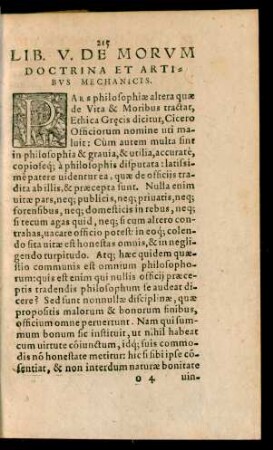 215
LIB. V. DE MORVM
DOCTRINA ET ARTI-
BVS MECHANICIS.
PARS philosophiæ altera quæ
de Vita & Moribus tractat,
Ethica Gręcis dicitur, Cicero
Officiorum nomine uti ma-
luit: Cùm autem multa sint
in philosophia & grauia, & utilia, accuratè,
copioseq́; à philosophis disputata: latissi-
mè patere uidentur ea. quæ de officijs tra-
dita ab illis, & pręcepta sunt. Nulla enim
uitæ pars, neq; publicis, neq; priuatis, neq;
forensibus, neq; domesticis in rebus, neq;
si tecum agas quid, neq; si cum altero con-
trahas, uacare officio potest: in eoq́; colen-
do sita uitæ est honestas omnis, & in negli-
gendo turpitudo. Atq; hæc quidem quæ-
stio communis est omnium philosopho-
rum: quis est enim qui nullis officij præce-
ptis tradendis philosophum se audeat di-
cere? Sed sunt nonnullæ disciplinæ, quæ
propositis malorum & bonorum finibus,
officium omne peruertunt. Nam qui sum-
mum bonum sic instituit, ut nihil habeat
cum uirtute cōiunctum, idq́; suis commo-
dis nō honestate metitur: hic si sibi ipse cō-
sentiat, & non interdum naturæ bonitate
o 4 uin-